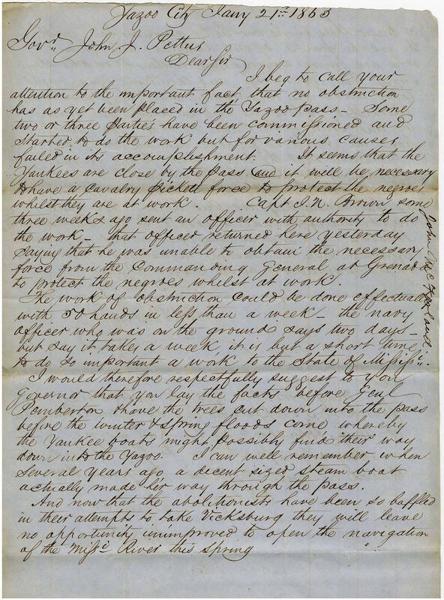 Yazoo City Jany 21st 1863
Govr. John J. Pettus
Dear Sir
I beg to call your
attention to the important fact that no obstruction
has as yet been placed in the Yazoo pass - Some
two or three parties have been commissioned and
started to do the work but for various causes
failed in its accomplishment. It seems that the
Yankees are close by the pass and it will be necessary
to have a cavalry picket force to protect the negroes
whilst they are at work. Capt I. N. Brown some
three weeks ago sent an officer with authority to do
the work - that officer returned here yesterday
saying that he was unable to obtain the necessary
force from the Commanding General at Grenada
to protect the negroes whilst at work.
The work of obstruction could be done effectually
with 50 hands in less than a week - the navy
officer who was on the ground says two days,
but say it takes a week it is but a short time
to do so important a work to the State of Missippi.
I would therefore respectfully suggest to you
Governor that you lay the facts before Genl
Pemberton & have the trees cut down into the pass
before the winter & spring floods come whereby
the Yankee boats might possibly find their way
down into the Yazoo. I can well remember when
several years ago, a decent sized steam boat
actually made her way through the pass.
And now that the abolitionists have been so baffled
in their attempts to take Vicksburg they will leave
no opportunity unimproved to open the navigation
of the Missi River this spring
John M.